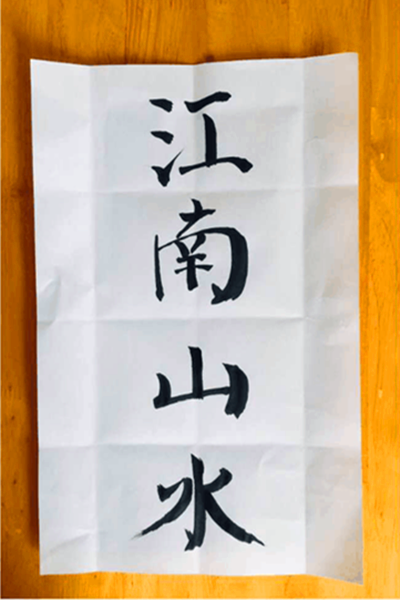 江南山水